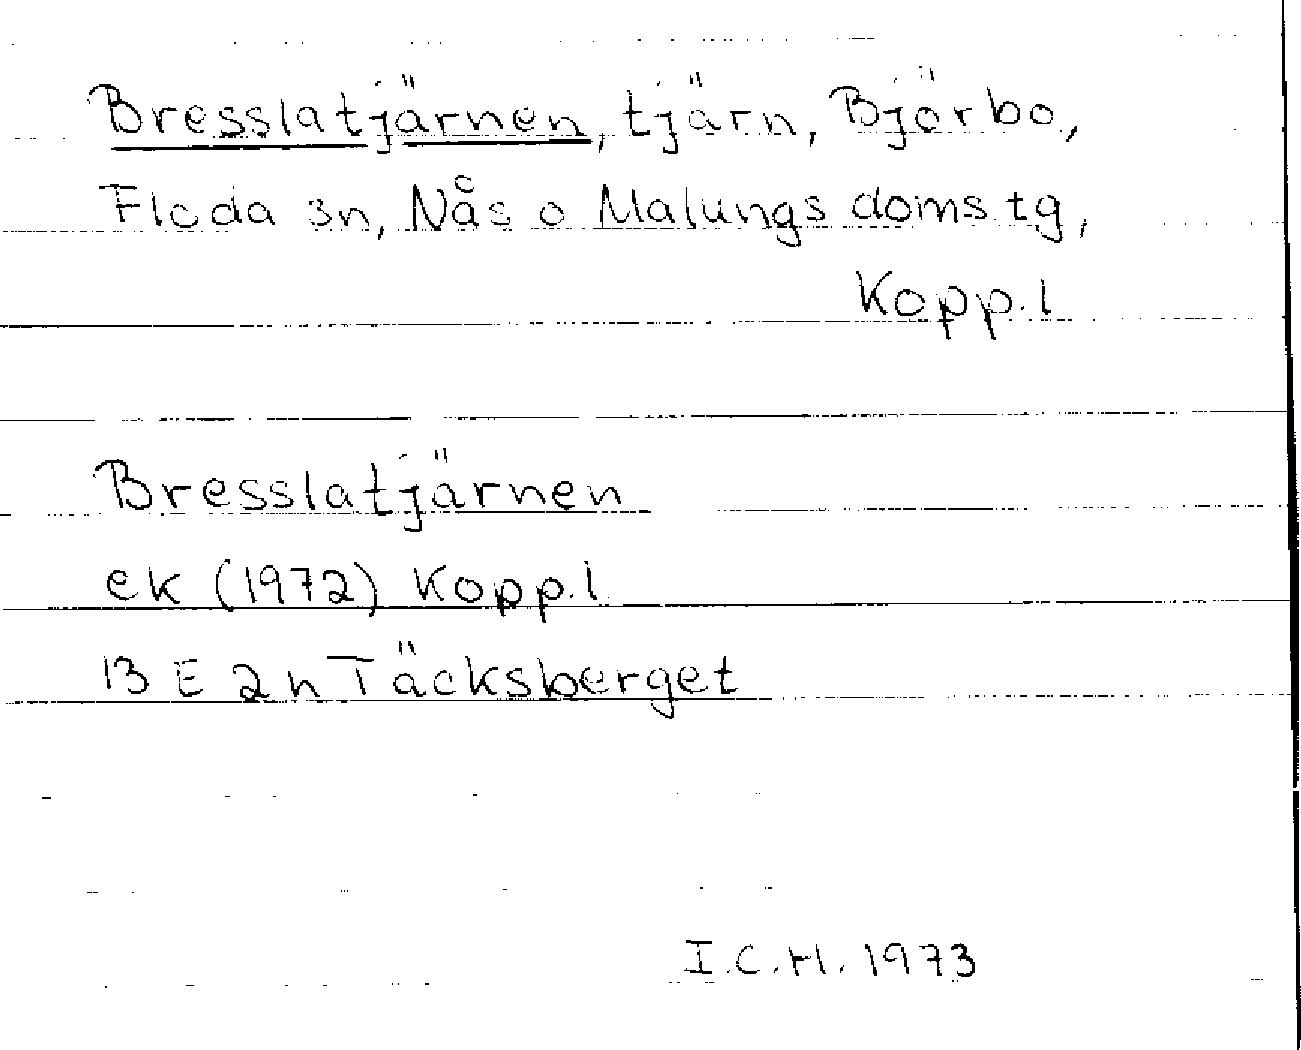 Bresslatjärnen, tjärn, Björbo,
Floda sn, Nås o Malungs doms.tg,
Kopp.l
Bresslatjärnen
ek (1972) Kopp.l
13 E 2h Täcksberget
I.C.H. 1973